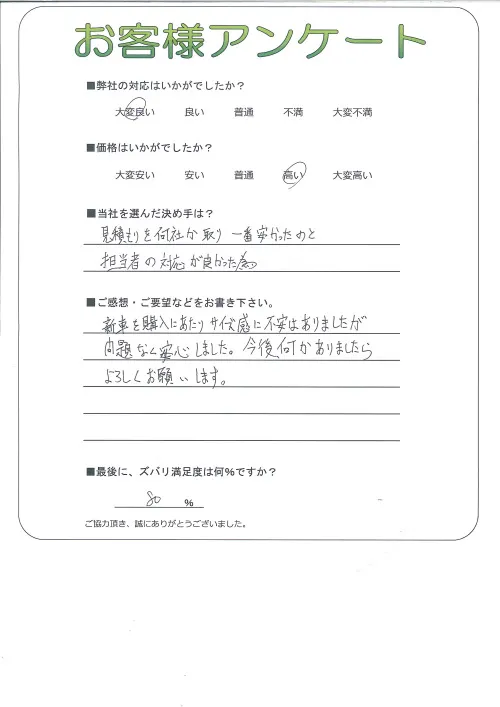 お客様アンケート
■弊社の対応はいかがでしたか？
大変良い 良い 普通 不満 大変不満
■価格はいかがでしたか？
大変安い 安い 普通 高い 大変高い
■当社を選んだ決め手は？
見積もりを何社か取り 一番安かったのと
担当者の対応が良かった為
■ご感想・ご要望などをお書き下さい。
新車を購入にあたりサイズ感に不安はありましたが
問題なく安心しました。今後何かありましたら
よろしくお願いします。
■最後に、ズバリ満足度は何％ですか？
80 %
ご協力頂き、誠にありがとうございました。